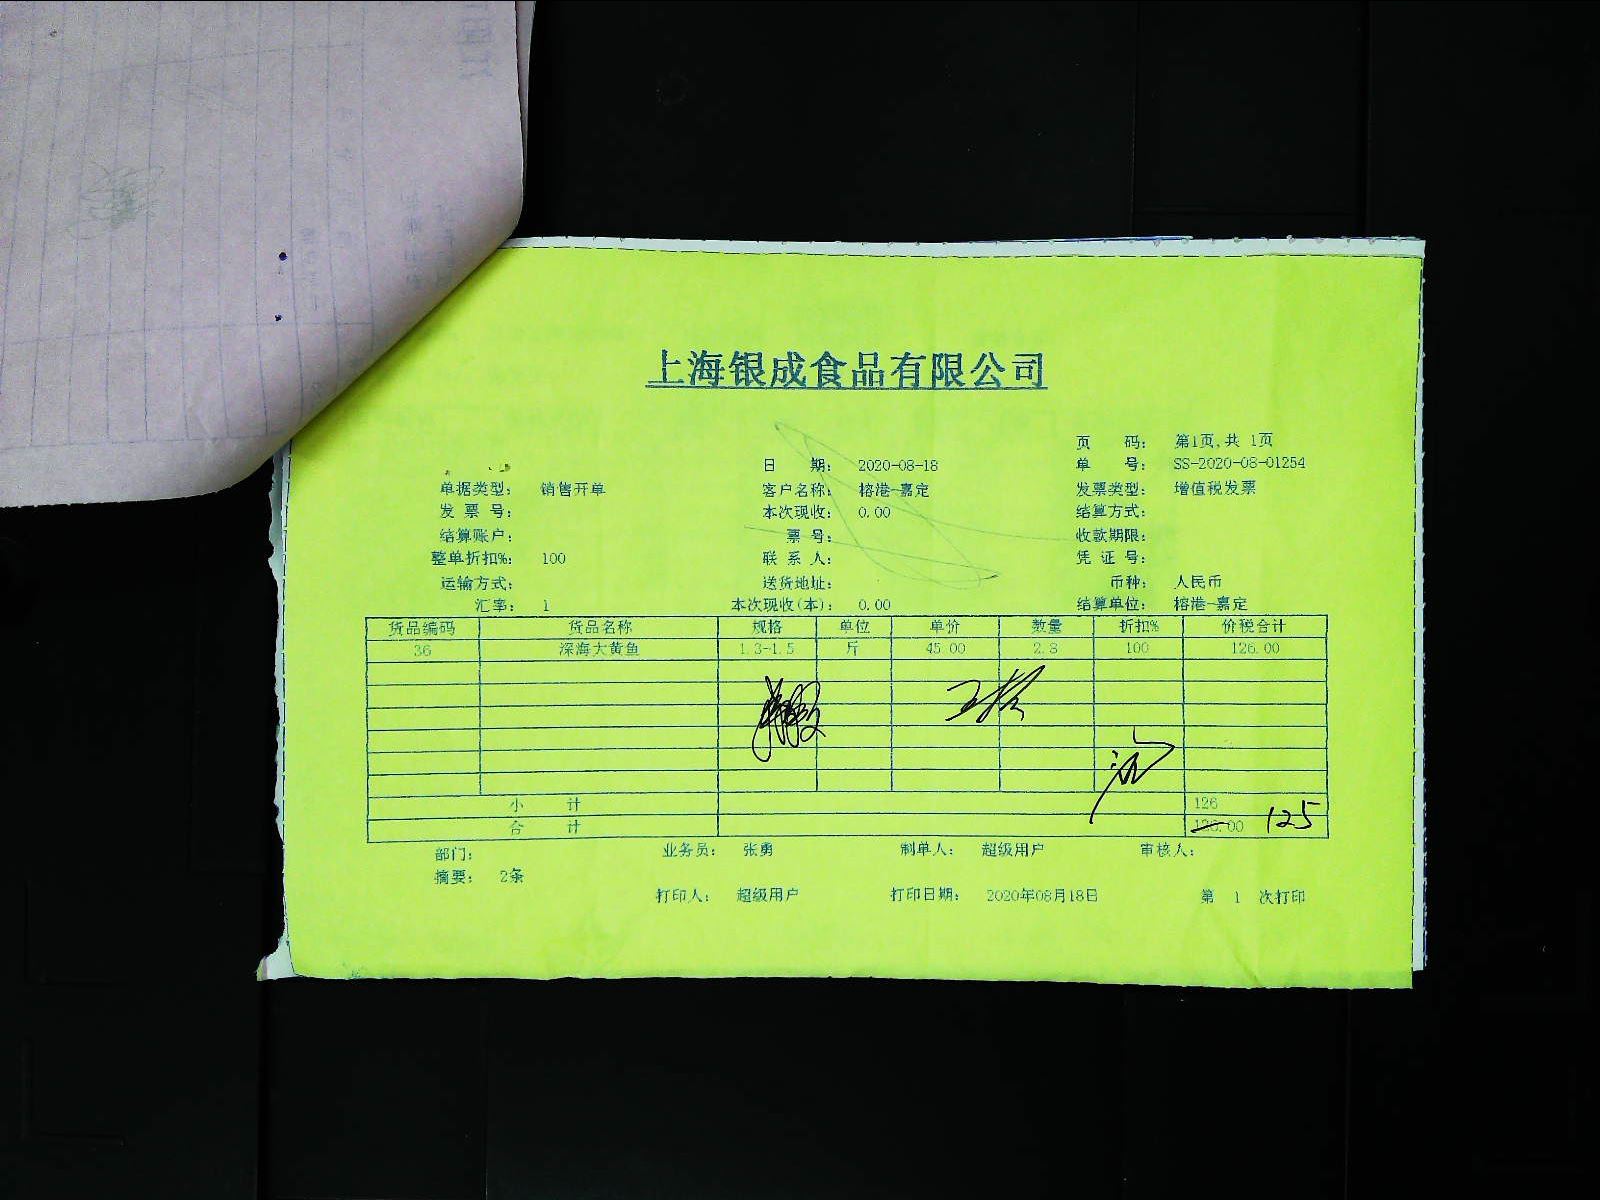 上海银成食品有限公司
页 码： 第1页,共 1页
日 期： 2020-08-18 单 号： SS-2020-08-01254
单据类型： 销售开单 客户名称： 榕港-嘉定 发票类型： 增值税发票
发 票 号： 本次现收： 0.00 结算方式：
结算账户： 票 号： 收款期限：
整单折扣%： 100 联 系 人： 凭 证 号：
运输方式： 送货地址： 币种： 人民币
汇率： 1 本次现收(本)： 0.00 结算单位： 榕港-嘉定
货品编码 货品名称 规格 单位 单价 数量 折扣% 价税合计
36 深海大黄鱼 1.3-1.5 斤 45.00 2.8 100 126.00
小 计 126
合 计 126.00 125
部门： 业务员： 张勇 制单人： 超级用户 审核人：
摘要： 2条
打印人： 超级用户 打印日期： 2020年08月18日 第 1 次打印